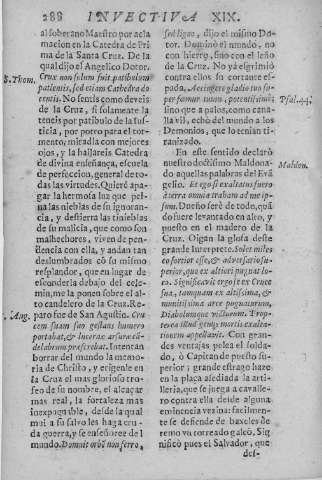 288 INVECTIVA XIX.
al soberano Maestro por acla
macion en la Catedra de Pri
ma de la Santa Cruz. De la
qual dijo el Angelico Dotor.
S. Thom. Crux non solum fuit patibulum
patientis, sed etiam Cathedra do
centis. No sentis como deveis
de la Cruz, si solamente la
teneis por patibulo de la Jus-
ticia, por potro para el tor-
mento, miradla con mejores
ojos, y la hallareis Catedra
de divina enseñança, escuela
de perfeccion, general de to-
das las virtudes. Quieró apa-
gar la hermosa luz que pei-
na las nieblas de su ignoran-
cia, y destierra las tinieblas
de su malicia, que como son
malhechores, viven de pen-
dencia con ella, y andan tan
deslumbrados có su mismo
resplandor, que en lugar de
esconderla debajo del cele-
min, me la ponen sobre el al-
to candelero de la Cruz. Re-
paro fue de San Agustin. Cru
S. Aug. cem suam suo gestans humero
portabat, & lucernæ arsuræ cã-
delabrum præferebat. Intentan
borrar del mundo la memo-
ria de Christo, y erigenle en
la Cruz el mas glorioso tro-
feo de su nombre, el alcaçar
mas real, la fortaleza mas
inexpugnable, desde la qual
mui a su salvo les haga cru-
da guerra, y se enseñoree del
mundo. Domuit orbẽ non ferro,
sed ligno, dijo el mismo Do-
tor. Dominó el mundo, no
con hierro, sino con el leño
de la Cruz. No ya esgrimió
contra ellos su cortante es-
pada, Accingere gladio tuo su-
Psal. 44. per femur tuum, potentissime;
sino que a palos, como cana-
lla vil, echò del mundo a los
Demonios, que lo tenian ti-
ranizado.
En este sentido declarò
Maldon. nuestro doctisimo Maldona-
do aquellas palabras del Eva
gelio. Et ego si exaltatus fuero
à terra omnia traham ad me ip-
sum. Dueño serè de todo, quã
do fuere levantado en alto, y
puesto en el madero de la
Cruz. Oigan la glosa deste
grande Interprete. Solet miles
eo fortior esse, & adversario su-
perior, que ex altiori pugnat lo-
co. Significavit ergo se ex Cruce
sua, tamquam ex altissima, &
munitissima arce pugnaturum,
Diabolumque victurum. Prop-
terea illud genus mortis exalta-
tionem appellavit. Con gran-
des ventajas pelea el solda-
do, ò Capitan de puesto su-
perior; grande estrago haze
en la plaça asediada la arti-
lleria, que se juega a cavalle-
ro contra ella desde alguna
eminencia vezina: facilmen-
te se defiende de baxeles de
remo un torreado galeó. Sig
nificó pues el Salvador, que
del-